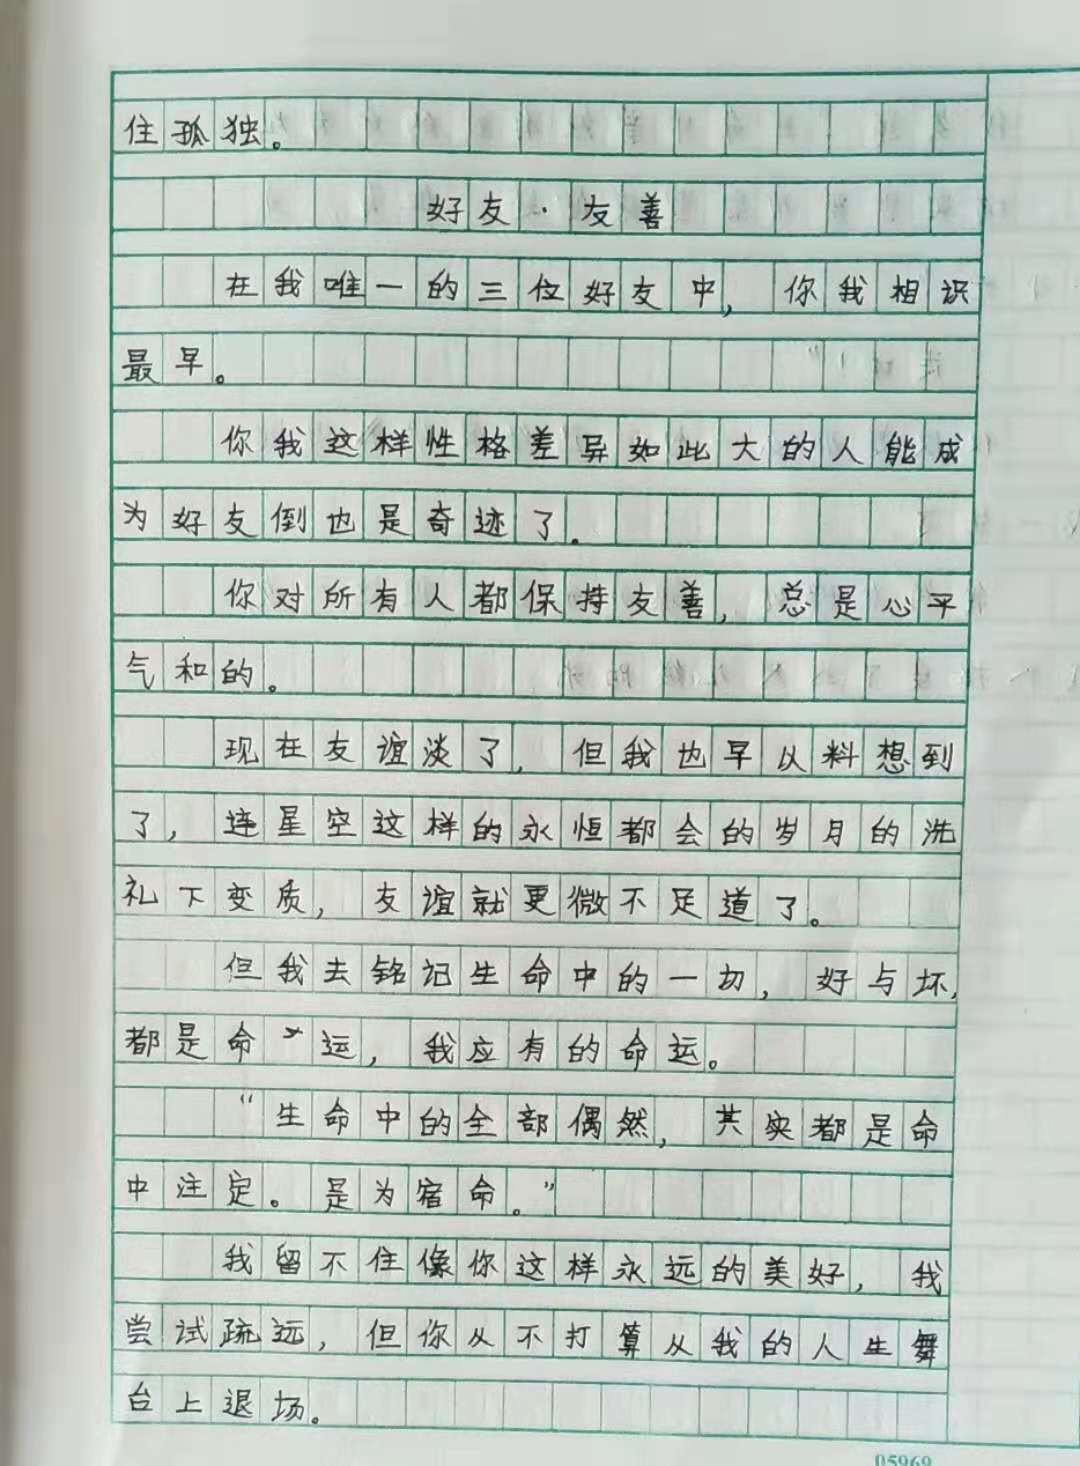 住孤独。
好友·友善
在我唯一的三位好友中，你我相识
最早。
你我这样性格差异如此大的人能成
为好友倒也是奇迹了。
你对所有人都保持友善，总是心平
气和的。
现在友谊淡了，但我也早以料想到
了，连星空这样的永恒都会的岁月的洗
礼下变质，友谊就更微不足道了。
但我去铭记生命中的一切，好与坏，
都是命运，我应有的命运。
“生命中的全部偶然，其实都是命
中注定。是为宿命。”
我留不住像你这样永远的美好，我
尝试疏远，但你从不打算从我的人生舞
台上退场。
05969